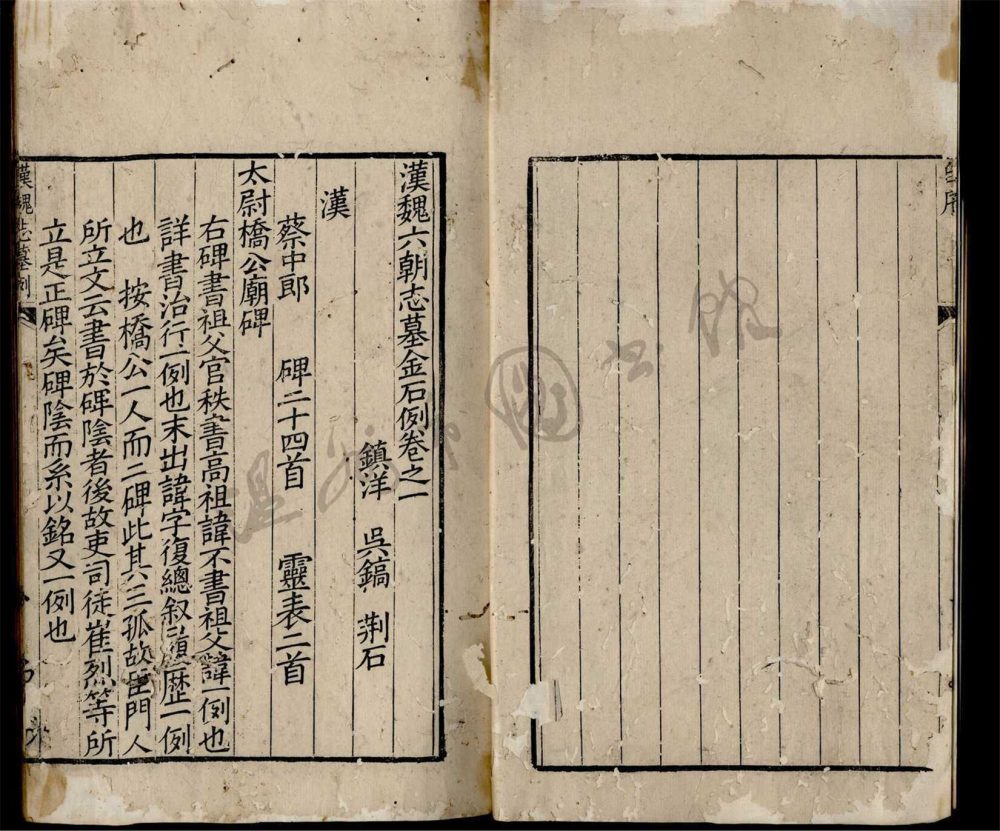 漢魏六朝志墓金石例卷之一
鎮洋 吳鎬 荆石
漢
蔡中郎 碑二十四首 靈表二首
太尉橋公廟碑
右碑書祖父官秩書高祖諱不書祖父諱一例也
詳書治行一例也末出諱字復總叙歷一例
也 按橋公一人而二碑此其三孤故臣門人
所立文云書於碑陰者後故吏司徒崔烈等所
立是正碑矣碑陰而系以銘又一例也
漢魏志墓例